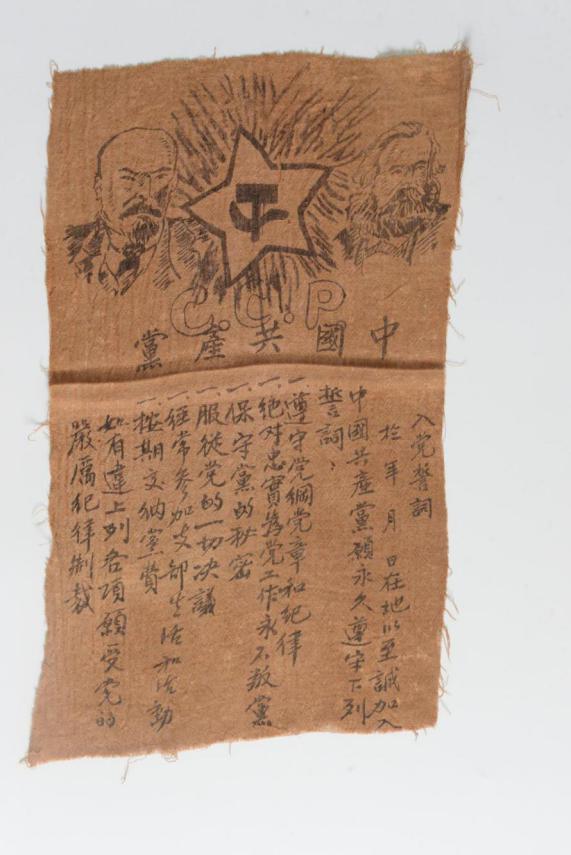 C.C.P
中國共產黨
入党誓詞
於 年 月 日在地以至誠加入
中國共產黨願永久遵守下列
誓詞：
一.遵守党綱党章和紀律
一.绝对忠實為党工作永不叛黨
一.保守黨的秘密
一.服從党的一切决議
一.經常参加支部生活和活動
一.按期交納黨費
如有違上列各項願受党的
嚴厲紀律制裁